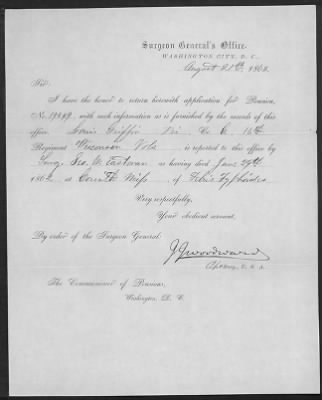 Surgeon General's Office.
WASHINGTON CITY, D. C.
August 21st, 186
Sir:
I have the honor to return herewith application for Pension,
No. 19899, with such information as is furnished by the records of this
office. Louis Griffin Pri Co. C 16th
Regiment Wisconsin Vols is reported to this office by
Surg. Geo. W. Eastman as having died June 29th
186 at Corinth Miss of Febris Typhoides
Very respectfully,
Your obedient servant.
By order of the Surgeon General:
J J Woodward
U. S. A.
The Commissioner of Pensions,
Washington, D. C.